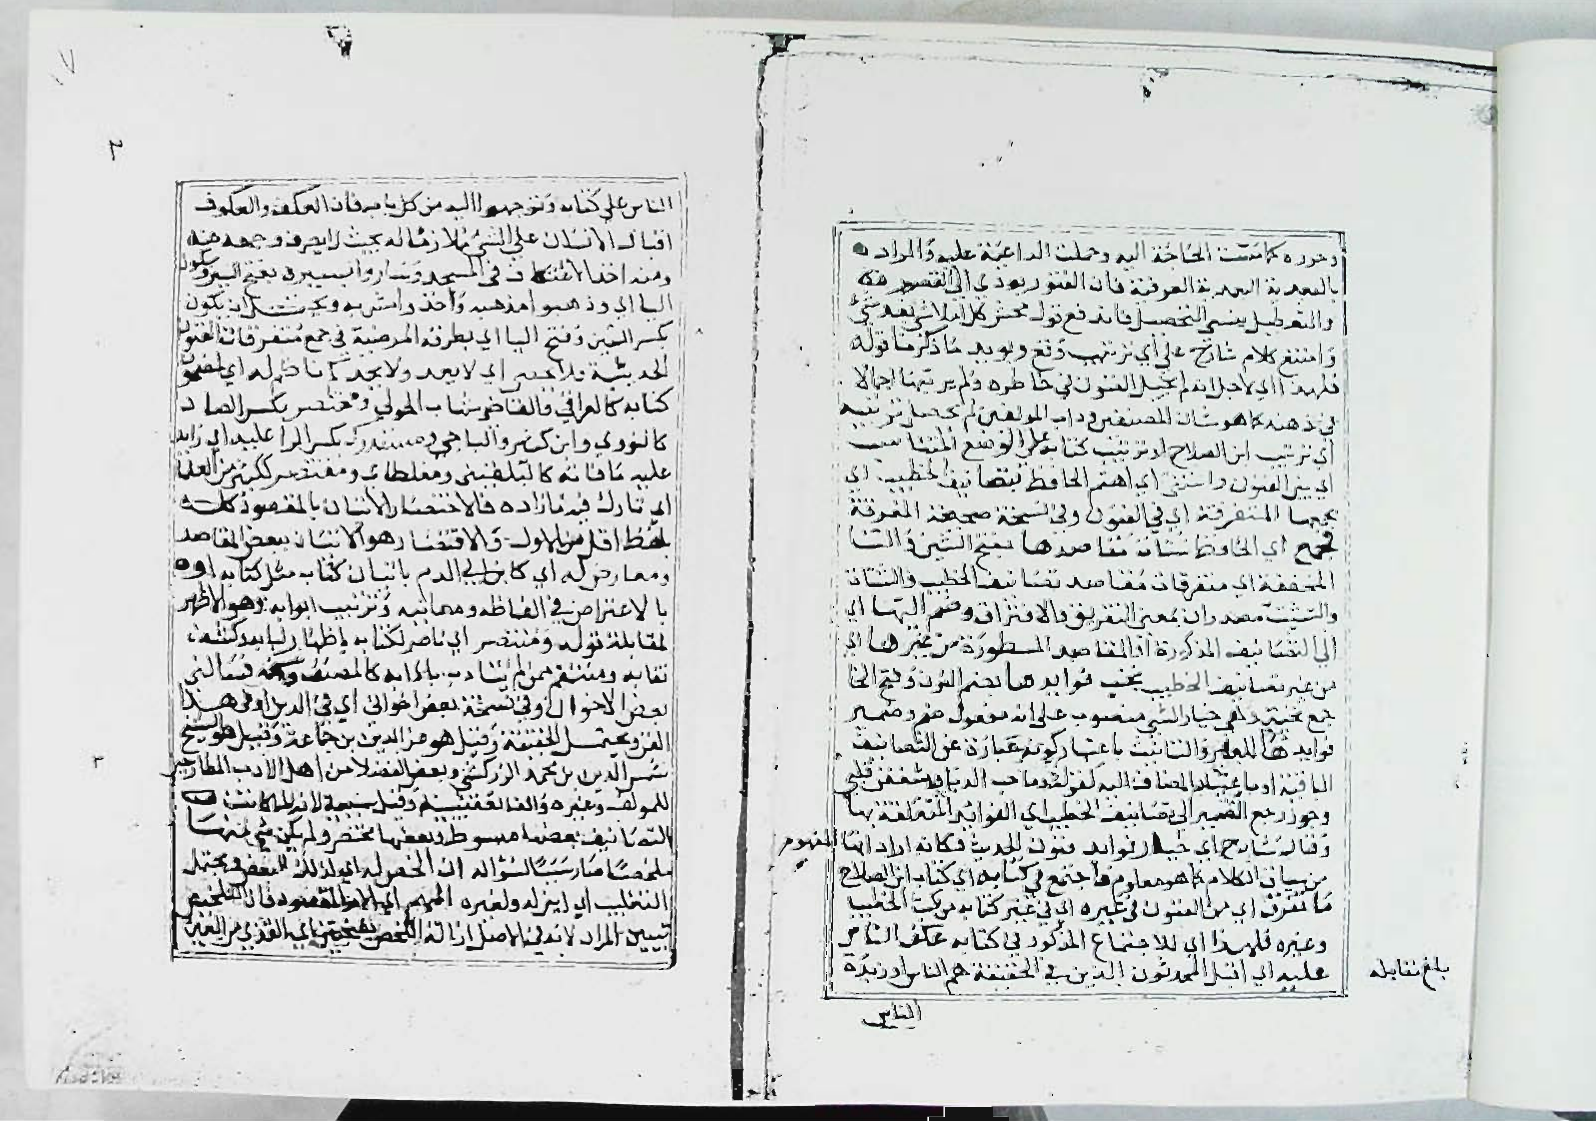 وحوره كما مست الحاجة اليه وحملت الداعية عليه والمراد
بالبعدية البعدية العرفية فان الفتور يودي الى القصور
والتعطيل ينسي التحصيل فاندفع قول محش كل املا شي بعد شي
وامتنع كلام شارح على اي ترتيب وقع ويويد ما ذكرنا قوله
فلهذا اي لاجل انه لم يخيل الفنون في خاطره ولم يرتبها اجمالا
في ذهنه كما هو شان المصنفين وداب المولفين لم يحصل ترتيبه
اي ترتيب ابن الصلاح او ترتيب كتابه على الوضع المناسب
اي بين الفنون واعتنى اي اهتم الحافظ بتصانيف الخطيب اي
بجمعها المتفرقة اي في الفنون وفي نسخة صحيحة المفرقة
فجمع اي الحافظ شتات مقاصدها بفتح الشين وفي التا
المخففة اي متفرقات مقاصد تصانيف الخطيب والشتات
والتشتت مصدران بمعنى التفريق والافتراق وضم اليها اي
الى التصانيف المذكورة او المقاصد المسطورة من غيرها اي
من غير تصانيف الخطيب نخب فوايدها بضم النون وفتح الخا
جمع نخبة وهي خيار الشي منصوب على انه مفعول ضم وضمير
فوايدها للمعلوم والتانيث باعتبار كونه عبارة عن التصانيف
الباقية او باعتبار المضاف اليه كقوله وما حب الديار شغفن قلبي
وجوز رجع الضمير الى تصانيف الخطيب اي الفوايد المتعلقة بها
وقال شارح اي خيار فوايد فنون الحديث فكانه اراد انها المفهوم
من سياق الكلام كما هو معلوم فاجتمع في كتابه اي كتاب ابن الصلاح
ما تفرق اي من الفنون في غيره اي في غير كتابه من كتب الخطيب
وغيره فلهذا اي للاجتماع المذكور في كتابه عكف الناس
عليه اي اقبل المحدثون الذين في الحقيقة هم الناس او زبدة
بلغ مقابله
الناس
الناس على كتابه وتوجهوا اليه من كل باب فان العكف والعكوف
اقبال الانسان على الشي ملازما له بحيث لا يصرف وجهه عنه
ومنه اخذ الاعتكاف في المسجد وساروا بسيره بفتح السين وسكون
اليا اي وذهبوا مذهبه واخذوا مشربه ويحتمل ان يكون
بكسر السين وفتح اليا اي بطرقه المرضية في جمع متفرقات الفنون
الحديثية فلا يحصى اي لا يعد ولا يحد كم ناظم له اي لمضمون
كتابه كالعراقي والقاضي شهاب الخولي ومختصر بكسر الصاد
كالنووي وابن كثير والباجي ومستدرك بكسر الرا عليه اي زايد
عليه ما فاته كالبلقيني ومغلطاي ومقتصر ككثير من العلما
اي تارك فيه ما زاده فالاختصار الاتيان بالمقصود كله
بلفظ اقل من الاول والاقتصار هو الاتيان ببعض المقاصد
ومعارض له اي كابن ابي الدم باتيان كتاب مثل كتابه او
بالاعتراض في الفاظه ومعانيه وترتيب ابوابه وهو الاظهر
لمقابلة قوله ومنتصر اي ناصر لكتابه باظهار لبابه وكشف
نقابه ومنتقم ممن لم يتادب بادابه كالمصنف
بعض الاخوان وفي نسخة بعض اخواني اي في الدين او في هذا
الفن ويحتمل الحقيقة وقيل هو عز الدين بن جماعة وقيل هو الشيخ
شمس الدين بن محمد الزركشي وبعض الفضلا من اهل الادب
للمولف وغيره والفا تعقيبية وقيل سببية لانه لما كانت
التصانيف بعضها مبسوط وبعضها مختصر ولم يكن شي منها
ملخصا صار سببا لسؤاله ان الخص له اي لذلك البعض ويحتمل
التغليب اي ايتر له ولغيره المهم اي الامر المقصود فان التلخيص
تبيين المراد لانه في الاصل ازالة اللخص بفتحتين اي القذي من العين